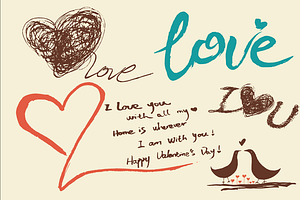 love
love
I U
I love you
with all my
Home is wherever
I am with you!
Happy Valentine's Day!